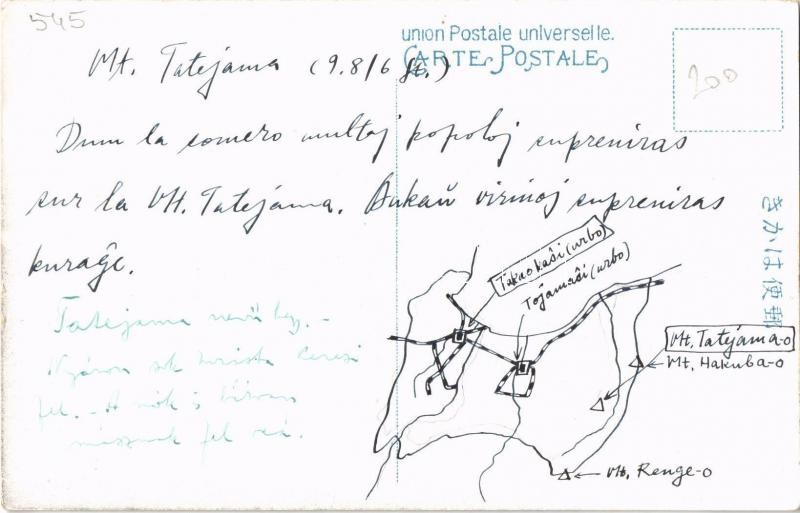 545
union Postale universelle.
CARTE POSTALE
200
Mt. Tatejama (9.8/6 ft.)
Dum la somero multaj popoloj supreniras
sur la Mt. Tatejama. Ankaŭ virinoj supreniras
kuraĝe.
きかは便郵
Takaokaŝi (urbo)
Tojamaŝi (urbo)
Mt. Tatejama-o
Mt. Hakuba-o
Mt. Renge-o
Tatejama nevű hegy.-
Nyáron sok turista keresi
fel. - A nők is bátran
másznak fel reá.